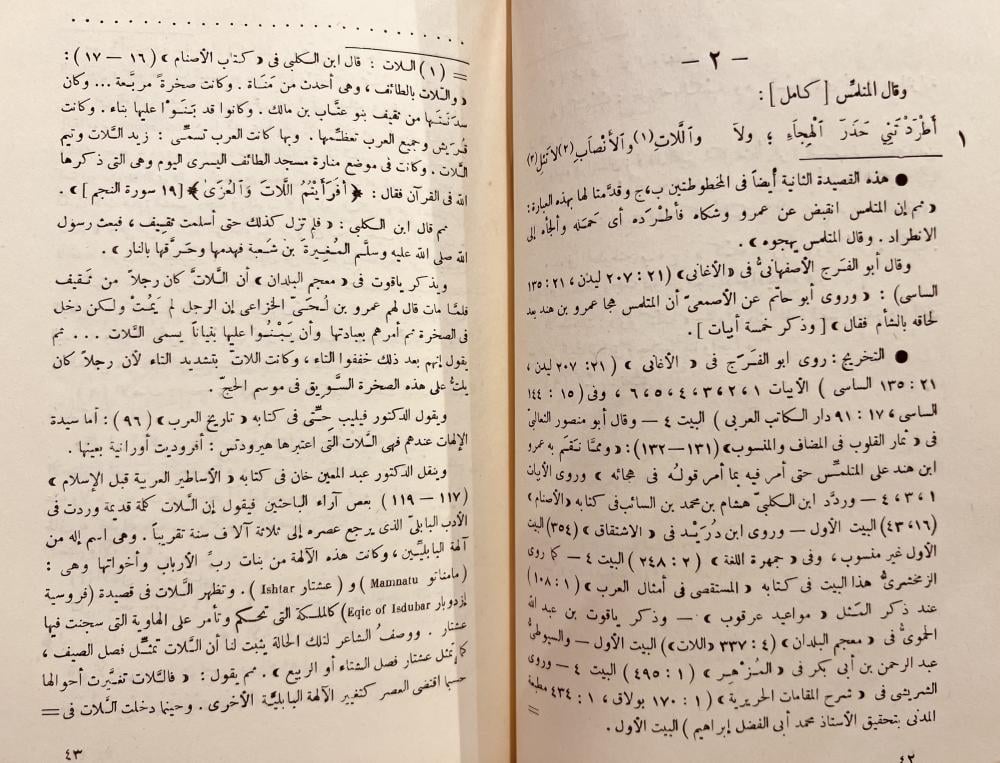 — ٢ —
وقال المتلمِّس [ كامل ] :
١ أَطَرَدْتَنِي حَذَرَ الْهِجَاءِ ؛ ولا واللَّاتِ(١) والأَنْصَابِ(٢) لا تَئِلُ(٣)
● هذه القصيدة الثانية أيضاً فى المخطوطتين ب،ج وقدمتا لها بهذه العبارة :
« ثم إن المتلمس انقبض عن عمرو وشكاه فأطرده أى حَمَلَه وألجأه إلى
الانطراد . وقال المتلمس يهجوه » .
وقال أبو الفَرج الأصفهانىُّ فى « الأغانى » ( ٢١ : ٢٠٧ ليدن ، ٢١ : ١٣٥
الساسى ) : « وروى أبو حاتم عن الأصمعىّ أن المتلمس هجا عمرو بن هند بعد
لحاقه بالشأم فقال » [ وذكر خمسة أبيات ] .
● التخريج : روى ابو الفَرَج فى « الأغانى » ( ٢١ : ٢٠٧ ليدن ،
٢١ : ١٣٥ الساسى ) الأبيات ١ ، ٢ ، ٣ ، ٤ ، ٥ ، ٦ ، وفى ( ١٥ : ١٤٤
الساسى ، ١٧ : ٩١ دار الكاتب العربى ) البيت ٤ — وقال أبو منصور الثعالبىّ
فى « ثمار القلوب فى المضاف والمنسوب » ( ١٣١—١٣٢ ) : « وممَّا نَقَم به عمرو
ابن هند على المتلمِّس حتى أمر فيه بما أمر قولُه فى هجائه » وروى الأبيات
١ ، ٣ ، ٤ — وردَّد ابن الكلبىّ هشام بن محمد بن السائب فى كتابه « الأصنام »
(١٦ ، ٤٣) البيت الأول — وروى ابن دُرَيْد فى « الاشتقاق » (٣٥٤) البيت
الأول غير منسوب ، وفى « جمهرة اللغة » ( ٢ : ٢٤٨ ) البيت ٤ — كما روى
الزمخشرىُّ هذا البيت فى كتابه « المستقصى فى أمثال العرب » ( ١ : ١٠٨ )
عند ذكر المَثل « مواعيد عرقوب » — وذكر ياقوت بن عبد الله
الحموىُّ فى « معجم البلدان » ( ٤ : ٣٣٧ « اللات » ) البيت الأول — والسيوطىُّ
عبد الرحمن بن أبى بكر فى « المُزْهِر » ( ١ : ٤٩٥ ) البيت ٤ — وروى
الشريشى فى « شرح المقامات الحريرية » ( ١ : ١٧٠ بولاق ، ١ : ٤٣٤ مطبعة
المدنى بتحقيق الأستاذ محمد أبى الفضل إبراهيم ) البيت الأول . =
٤٢
= (١) اللات : قال ابن الكلبى فى « كتاب الأصنام » ( ١٦ — ١٧ ) :
« واللات بالطائف ، وهى أحدث من مَنَاة . وكانت صخرةً مربَّعة ... وكان
سدَنَتَها من ثقيف بنو عتَّاب بن مالك . وكانوا قد بَنَوْا عليها بناء . وكانت
قُرَيش وجميع العرب تعظِّمها . وبها كانت العرب تسمِّى : زيد اللات وتيم
اللات . وكانت فى موضع منارة مسجد الطائف اليسرى اليوم وهى التى ذكرها
الله فى القرآن فقال : ﴿ أَفَرَأَيْتُمُ اللَّاتَ وَالْعُزَّىٰ ﴾ [ ١٩ سورة النجم ] » .
ثم قال ابن الكلبى : « فلم تزل كذلك حتى أسلمت ثقييف ، فبعث رسول
الله صلى الله عليه وسلَّم المُغيرةَ بن شعبة فهدمها وحَرَّقها بالنار » .
ويذكر ياقوت فى « معجم البلدان » أن اللاتَّ كان رجلاً من ثَقيف
فلمَّا مات قال لهم عمرو بن لُحَىّ الخزاعى إن الرجل لم يَمُتْ ولكن دخل
فى الصخرة ثم أمرهم بعبادتها وأن يَبْنُوا عليها بنياناً يسمى اللات ... ثم
يقول إنهم بعد ذلك خففوا التاء ، وكانت اللاتّ بتشديد التاء لأن رجلاً كان
يلتُّ على هذه الصخرة السَّويق فى موسم الحجّ .
ويقول الدكتور فيليب حِتِّى فى كتابه « تاريخ العرب » (٩٦) : أما سيدة
الإلهات عندهم فهى اللات التى اعتبرها هيرودتس : أفروديت أورانية بعينها .
وينقل الدكتور عبد المعين خان فى كتابه « الأساطير العربية قبل الإسلام »
( ١١٧ — ١١٩ ) بعض آراء الباحثين فيقول إن اللات كلمة قديمة وردت فى
الأدب البابلىّ الذى يرجع عصره إلى ثلاثة آلاف سنة تقريباً . وهى اسم إله من
آلهة البابليِّين ، وكانت هذه الآلهة من بنات ربِّ الأرباب وأخواتها وهى :
( مامناتو Mamnatu ) و ( عشتار Ishtar ) . وتظهر اللات فى قصيدة ( فروسية
إزدوبار Eqic of Isdubar) كالملكة التى تحكم وتأمر على الهاوية التى سجنت فيها
عشتار . ووصفُ الشاعر لتلك الحالة يثبت لنا أن اللات تمثِّل فصل الصيف ،
كما تمثل عشتار فصل الشتاء أو الربيع » . ثم يقول : « فاللات تغيَّرت أحوالها
حسبما اقتضى العصر كتغير الآلهة البابليَّة الأخرى . وحينما دخلت اللات فى =
٤٣